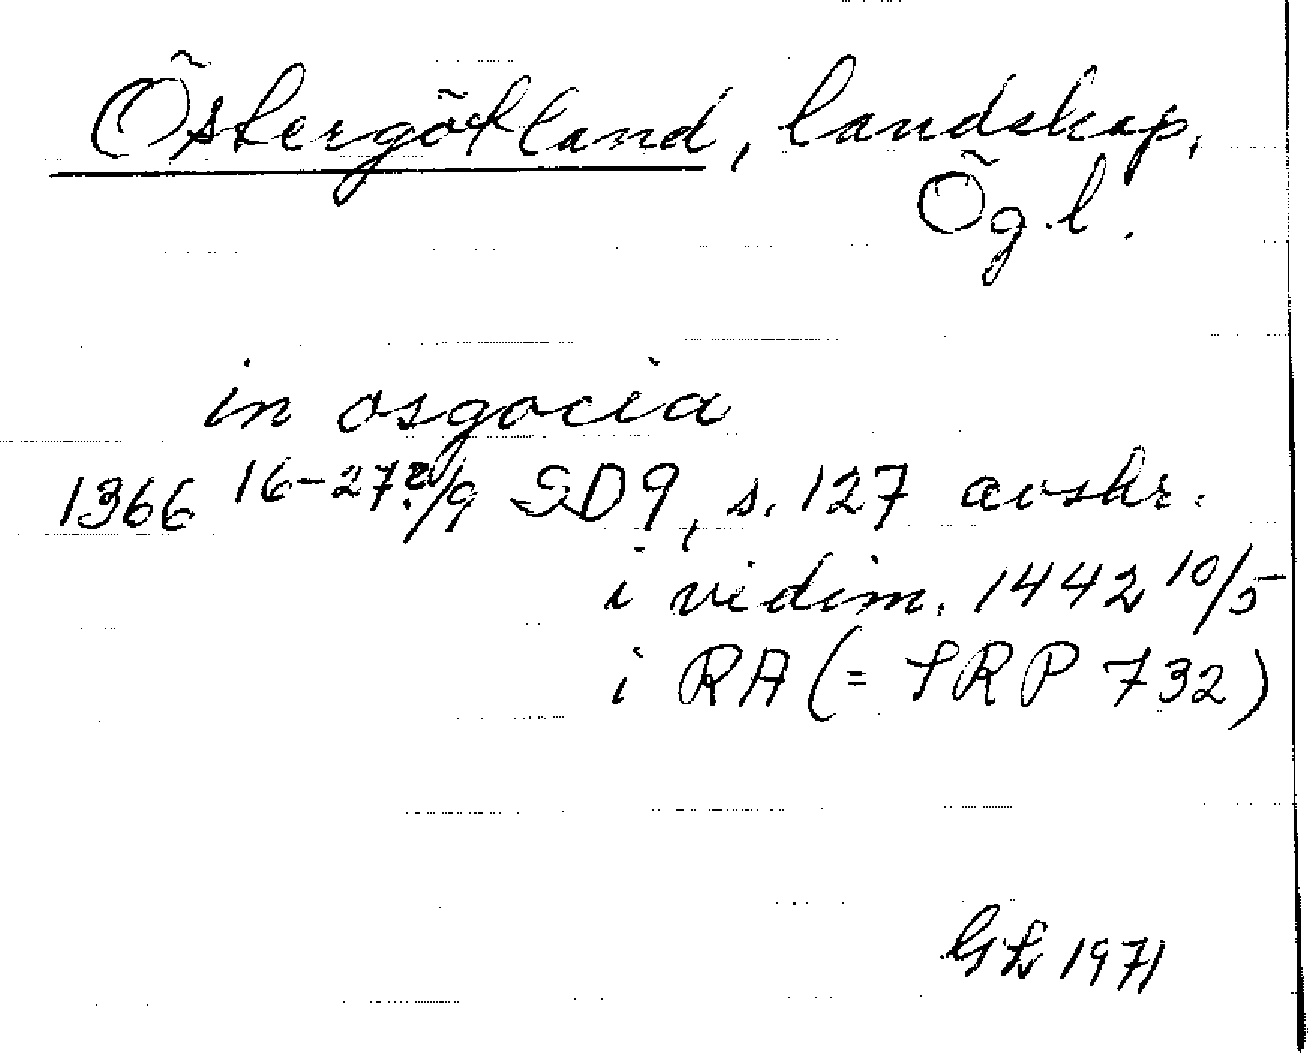 Östergötland, landskap,
Ögl.
in osgocia
1366 16-27?/9 SD9, s. 127 avskr.
i vidim. 1442 10/5
i RA (= SRP 732)
GL 1971